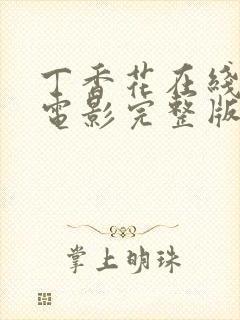 丁香花在綫
電影完整版
掌上明珠